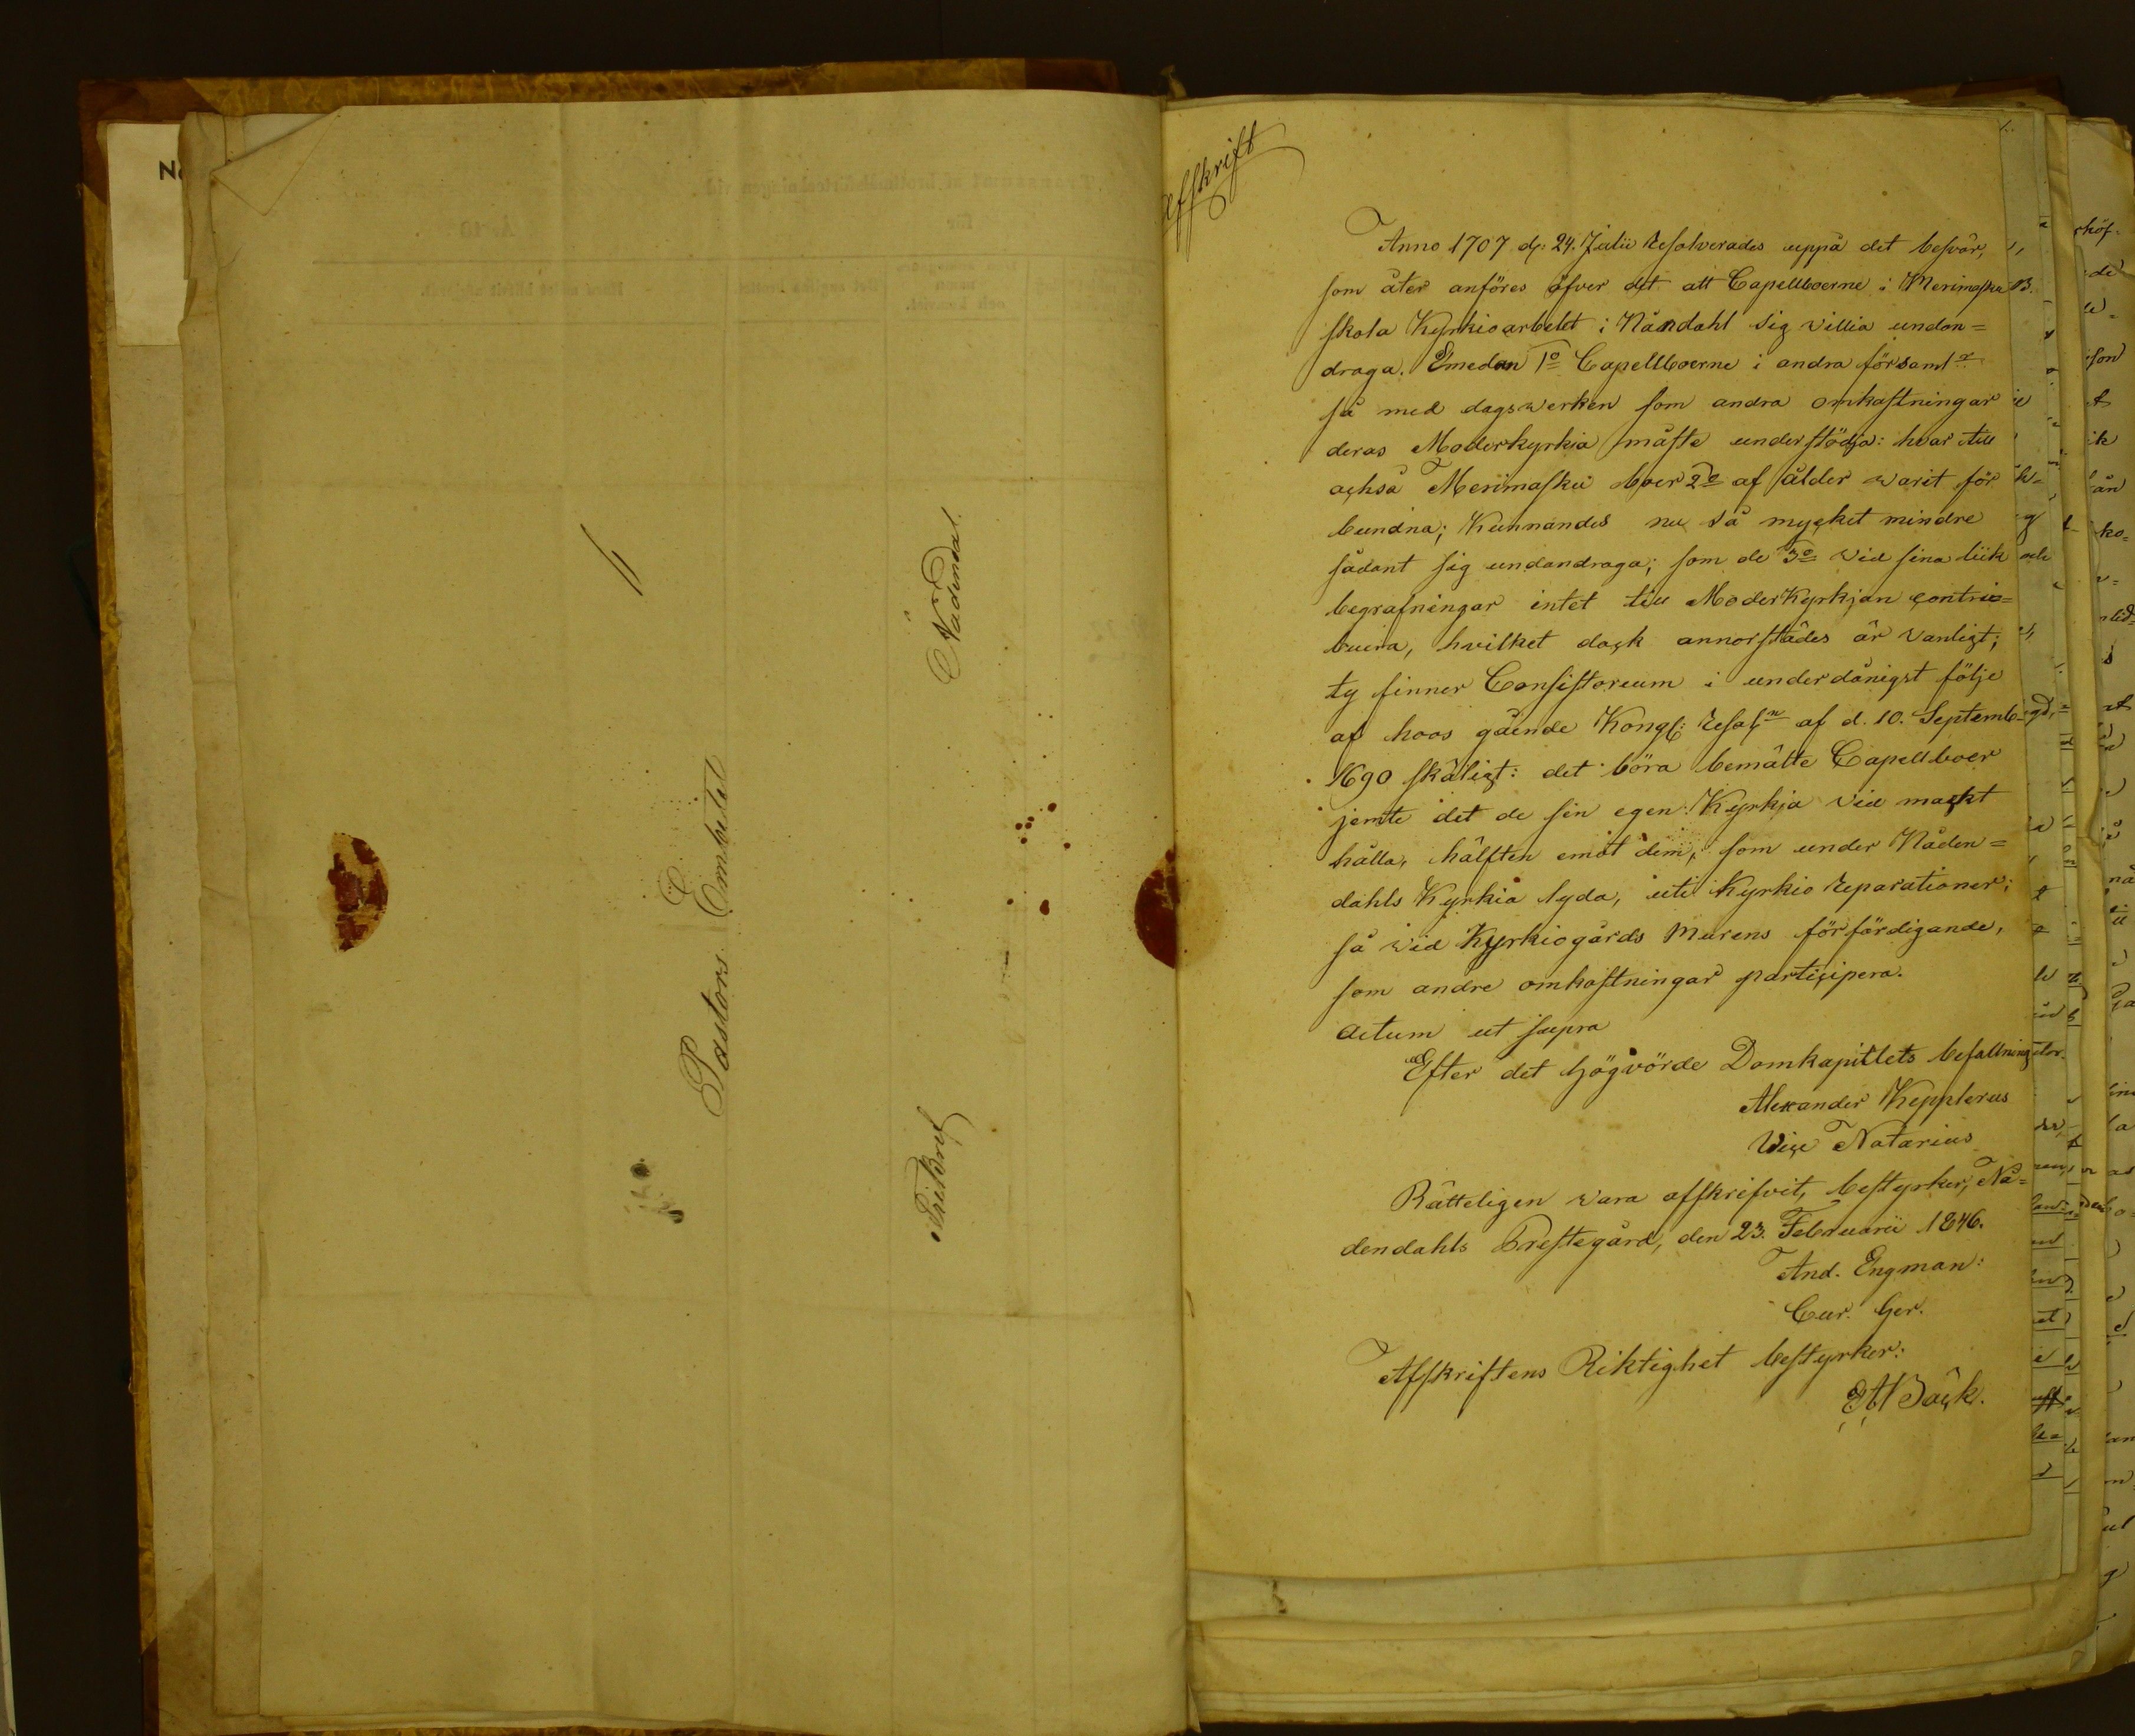 Pastors Embetet
Nådendal.
Fribref
Afskrift
Anno 1707 d: 24. Julii Resolverades uppå det besvär,
som åter anföres öfver det att Capellboerne i Merimasku
skola Kyrkioarbetet i Nåndahl sig villia undan=
draga. Emedan 1o Capellboerne i andra församlr
så med dagswerken som andra omkostningar
deras Moderkyrkia måste understödja: hvar till
också Merimasku boer 2o af ålder warit för
bundna; Kunnandes nu så mycket mindre
sådant sig undandraga; som de 3o vid sina liik
begrafningar intet till Moderkyrkjan contri=
buera, hvilket dock annorstädes är vanligt;
ty finner Consistorium i underdånigst följe
af hoos gående Kongl: Resoln af d. 10. Septemb
1690 skäligt: det böra bemälte Capellboer
jemte det de sin egen Kyrkja vid mackt
hålla, hälften emot dem, som under Nåden=
dahls Kyrkia lyda, uti Kyrkio reparationer;
så wid Kyrkiogårds Murens förfördigande,
som andre omkostningar participera.
Actum ut supra
Efter det högvörde Domkapitlets befallning
Alexander Kepplerus
Vice Notarius
Rätteligen vara afskrifvit, bestyrker, Nå=
dendahls Prestegård, den 23. Februarii 1846.
And. Engman:
Cur. Ger.
Afskriftens Riktighet bestyrker:
EABäck.